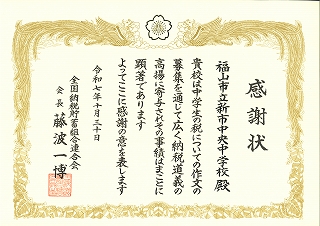 感謝状
福山市立新市中央中学校殿
貴校は中学生の税についての作文の
募集を通じて広く納税道義の
高揚に寄与されその事績はまことに
顕著であります
よってここに感謝の意を表します
令和七年十月三十日
全国納税貯蓄組合連合会
会長 藤波一博